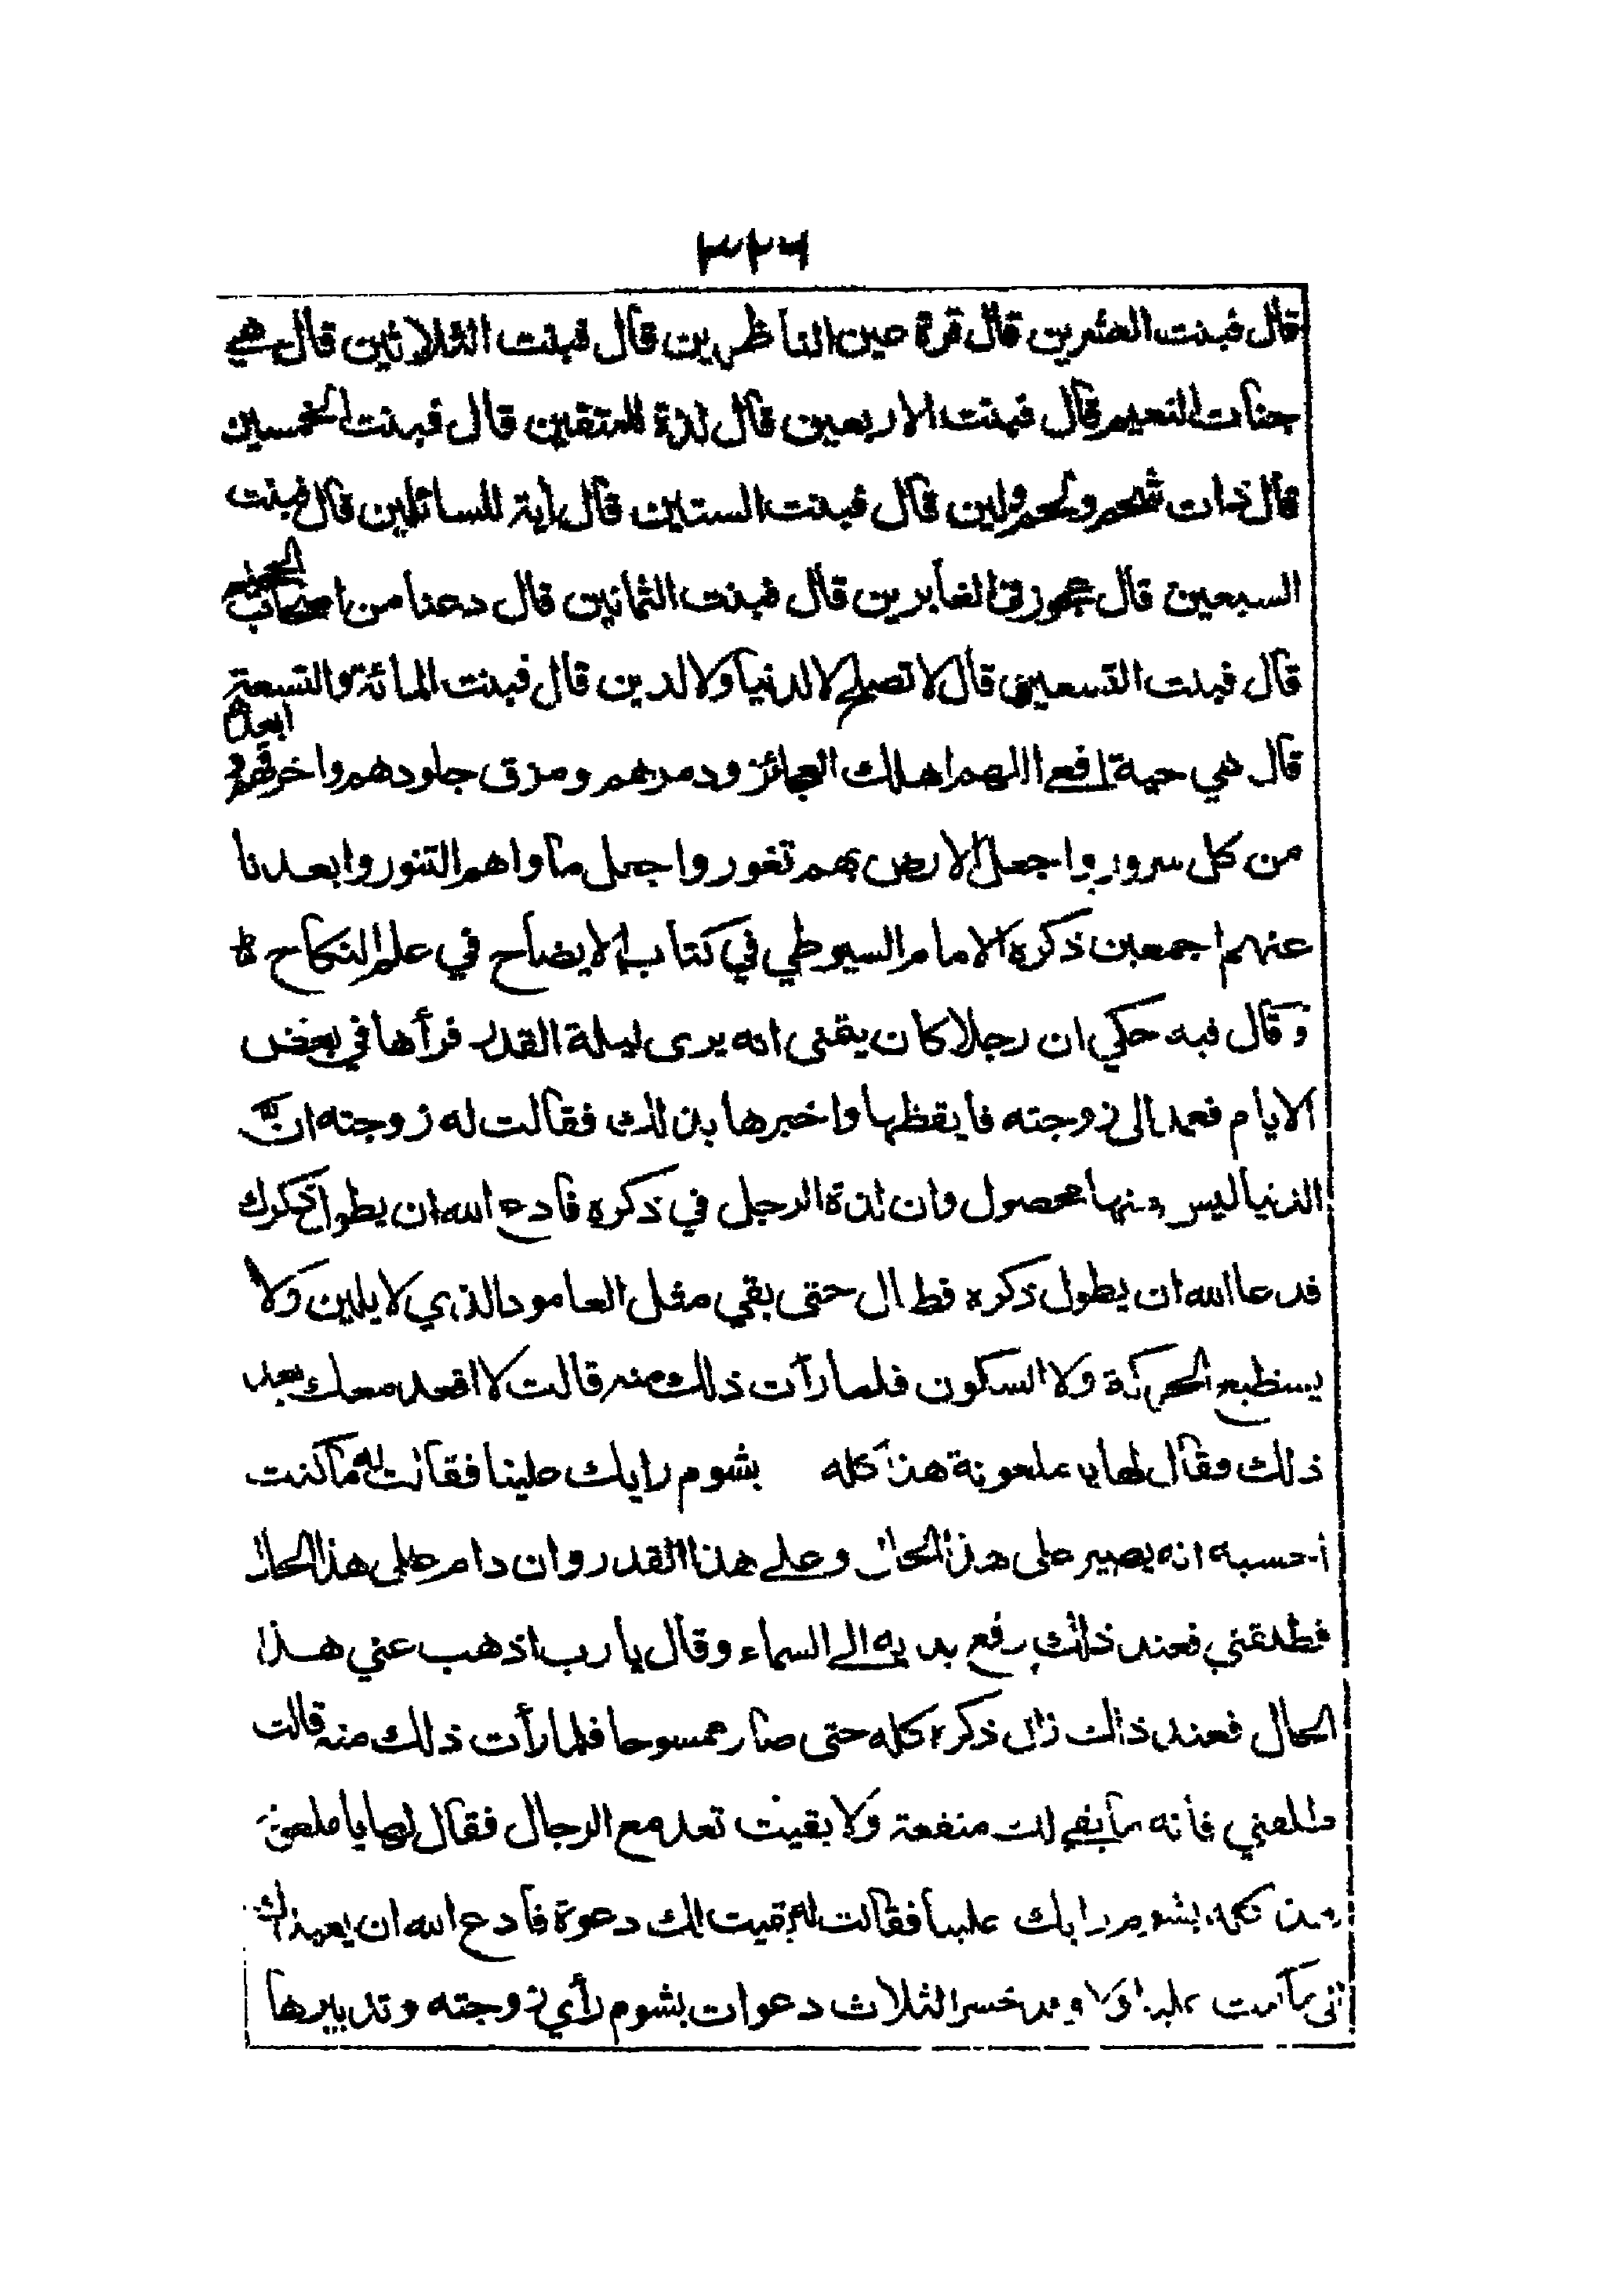 ٣٢٦
قال فبنت العشرين قال قرة عين الناظرين قال فبنت الثلاثين قال هي
جنات النعيم قال فبنت الاربعين قال لذة للمتقين قال فبنت الخمسين
قال ذات شحم ولحم ولين قال فبنت الستين قال اية للسائلين قال فبنت
السبعين قال عجوز في الغابرين قال فبنت الثمانين قال دعنا من اصحاب الجحيم
قال فبنت التسعين قال لا تصلح لا لدنيا ولا لدين قال فبنت المائة والتسعة
قال هي حية افعا اللهم اهلك العجائز ودمرهم ومزق جلودهم واخرقهم و ابعدهم
من كل سرور واجعل الارض بهم تغور واجعل ماواهم التنور وابعدنا
عنهم اجمعين ذكره الامام السيوطي في كتاب الايضاح في علم النكاح
وقال فيه حكي ان رجلا كان يتمنى انه يرى ليلة القدر فرأها في بعض
الايام فعمد الى زوجته فايقظها واخبرها بذلك فقالت له زوجته ان
الدنيا ليس منها محصول وان لذة الرجل في ذكره فادع الله ان يطول ذكرك
فدعا الله ان يطول ذكره فطال حتى بقي مثل العامود الذي لا يلين ولا
يستطيع الحركة ولا السكون فلما رأت ذلك منه قالت لا اقعد معك بعد
ذلك فقال لها يا ملعونة هذا كله بشوم رايك علينا فقالت له ما كنت
أحسبه انه يصير على هذا الحال وعلى هذا القدر وان دام على هذا الحال
فطلقني فعند ذلك رفع يديه الى السماء وقال يا رب اذهب عني هذا
الحال فعند ذلك زال ذكره كله حتى صار ممسوحا فلما رأت ذلك منه قالت
طلقني فأنه ما بقي لك منفعة ولا بقيت تعد مع الرجال فقال لها يا ملعونة
هذا كله بشوم رايك علينا فقالت له بقيت لك دعوة فادع الله ان يعيد ذلك
خسر الثلاث دعوات بشوم رأي زوجته وتدبيرها